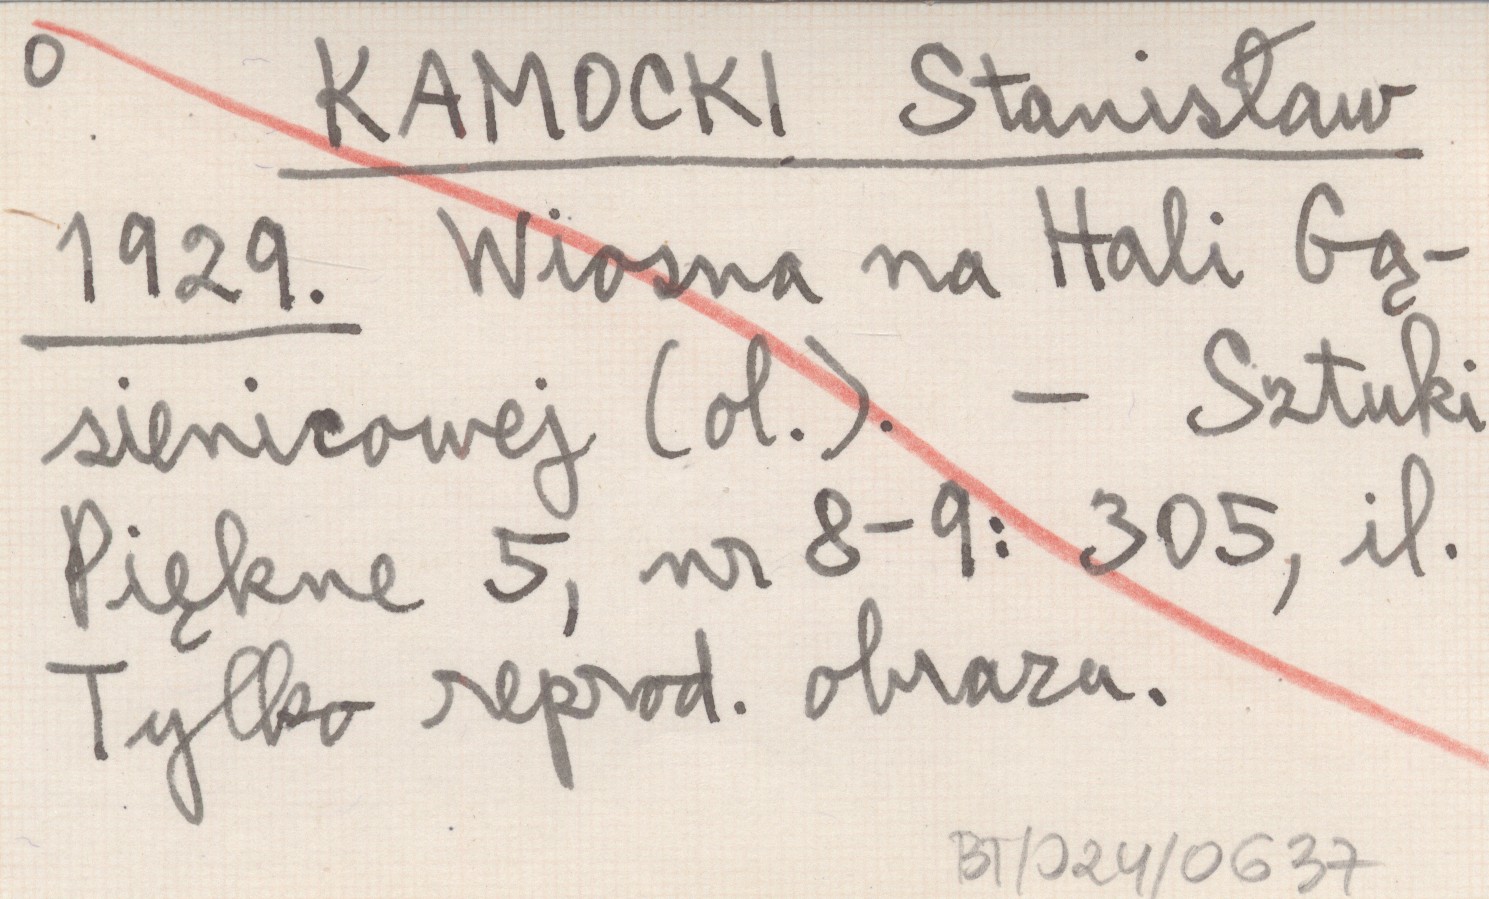 O KAMOCKI Stanisław
1929. Wiosna na Hali Gą-
sienicowej (ol.). – Sztuki
Piękne 5, nr 8–9: 305, il.
Tylko reprod. obrazu.
BT/024/0637